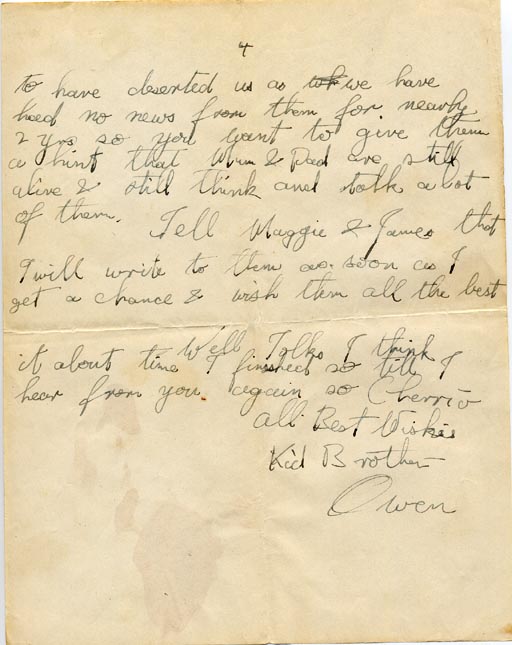 4
to have deserted us as we have
had no news from them for nearly
2 yrs so you want to give them
a hint that Mum & Dad are still
alive & still think and talk a lot
of them. Tell Maggie & James that
I will write to them as soon as I
get a chance & wish them all the best
Well Folks I think
it about time I finished so till I
hear from you again so Cherrio
all Best Wishes
Kid Brother
Owen